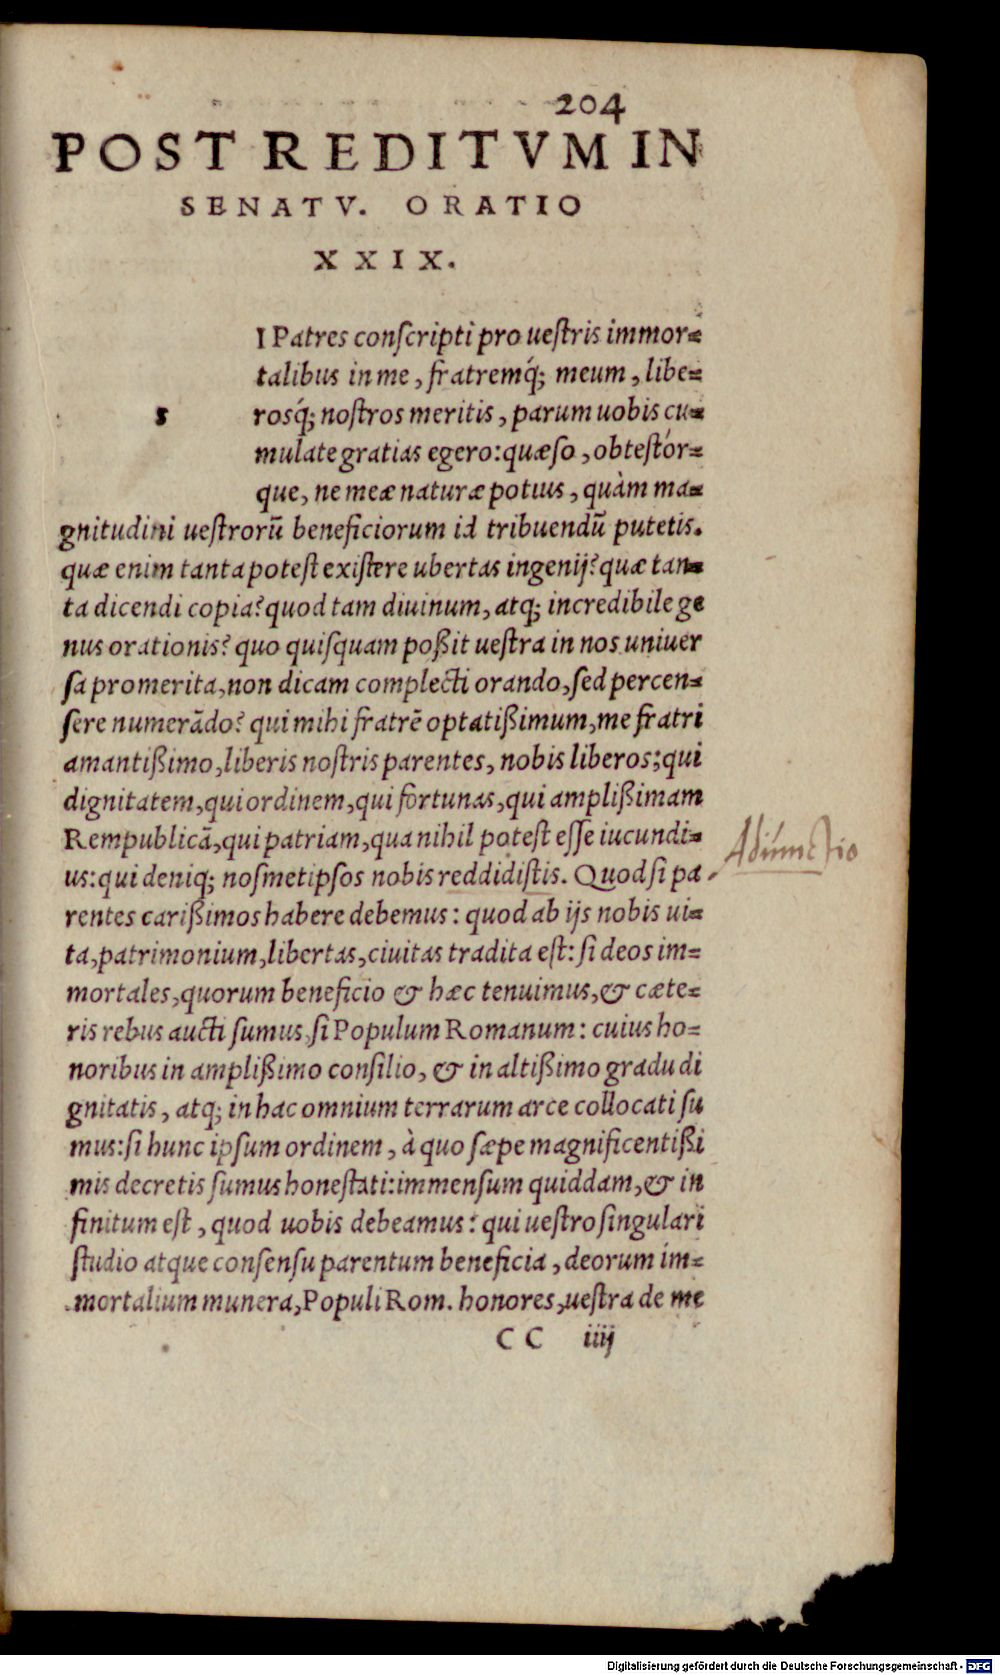 204
POST REDITVM IN
SENATV. ORATIO
XXIX.
I Patres conſcripti pro ueſtris immor-
talibus in me, fratremq́; meum, libe-
s rosq́; noſtros meritis, parum uobis cu-
mulate gratias egero: quæſo, obteſtór-
que, ne meæ naturæ potius, quàm ma-
gnitudini ueſtrorū beneficiorum id tribuendū putetis.
quæ enim tanta poteſt exiſtere ubertas ingenij? quæ tan-
ta dicendi copia? quod tam diuinum, atq; incredibile ge
nus orationis? quo quiſquam poßit ueſtra in nos uniuer
ſa promerita, non dicam complecti orando, ſed percen-
ſere numerādo? qui mihi fratrē optatißimum, me fratri
amantißimo, liberis noſtris parentes, nobis liberos; qui
dignitatem, qui ordinem, qui fortunas, qui amplißimam
Rempublicā, qui patriam, qua nihil poteſt eſſe iucundi-
us: qui deniq; noſmetipſos nobis reddidiſtis. Quod ſi pa
Adiunctio
rentes carißimos habere debemus: quod ab ijs nobis ui-
ta, patrimonium, libertas, ciuitas tradita eſt: ſi deos im-
mortales, quorum beneficio & hæc tenuimus, & cæte-
ris rebus aucti ſumus, ſi Populum Romanum: cuius ho-
noribus in amplißimo conſilio, & in altißimo gradu di
gnitatis, atq; in hac omnium terrarum arce collocati ſu
mus: ſi hunc ipſum ordinem, à quo ſæpe magnificentißi
mis decretis ſumus honeſtati: immenſum quiddam, & in
finitum eſt, quod uobis debeamus: qui ueſtro ſingulari
ſtudio atque conſenſu parentum beneficia, deorum im-
mortalium munera, Populi Rom. honores, ueſtra de me
CC iiij
Digitalisierung gefördert durch die Deutsche Forschungsgemeinschaft - DFG